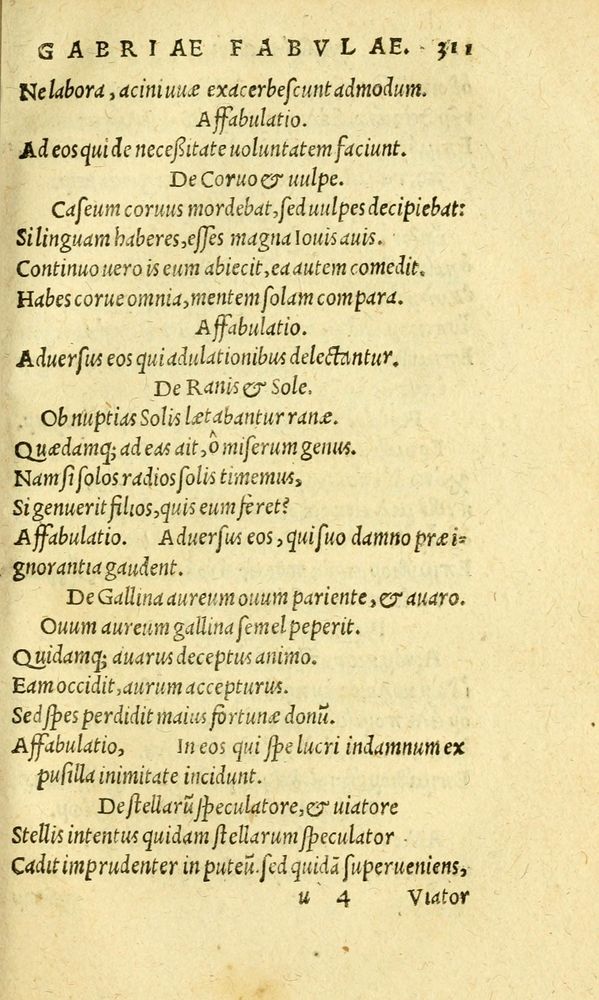 GABRIAE FABVLAE. 311
Ne labora, acini uuæ exacerbescunt admodum.
Affabulatio.
Ad eos qui de neceßitate uoluntatem faciunt.
De Coruo & uulpe.
Caseum coruus mordebat, sed uulpes decipiebat:
Si linguam haberes, esses magna Iouis auis.
Continuo uero is eum abiecit, ea autem comedit.
Habes corue omnia, mentem solam compara.
Affabulatio.
Aduersus eos qui adulationibus delectantur.
De Ranis & Sole.
Ob nuptias Solis lætabantur ranæ.
Quædamq; ad eas ait, ô miserum genus.
Nam si solos radios solis timemus,
Si genuerit filios, quis eum feret?
Affabulatio. Aduersus eos, qui suo damno præ i-
gnorantia gaudent.
De Gallina aureum ouum pariente, & auaro.
Ouum aureum gallina semel peperit.
Quidamq; auarus deceptus animo.
Eam occidit, aurum accepturus.
Sed spes perdidit maius fortunæ donū.
Affabulatio, In eos qui spe lucri in damnum ex
pusilla inimitate incidunt.
De stellarū speculatore, & uiatore
Stellis intentus quidam stellarum speculator
Cadit imprudenter in puteū. sed quidā superueniens,
u 4 Viator